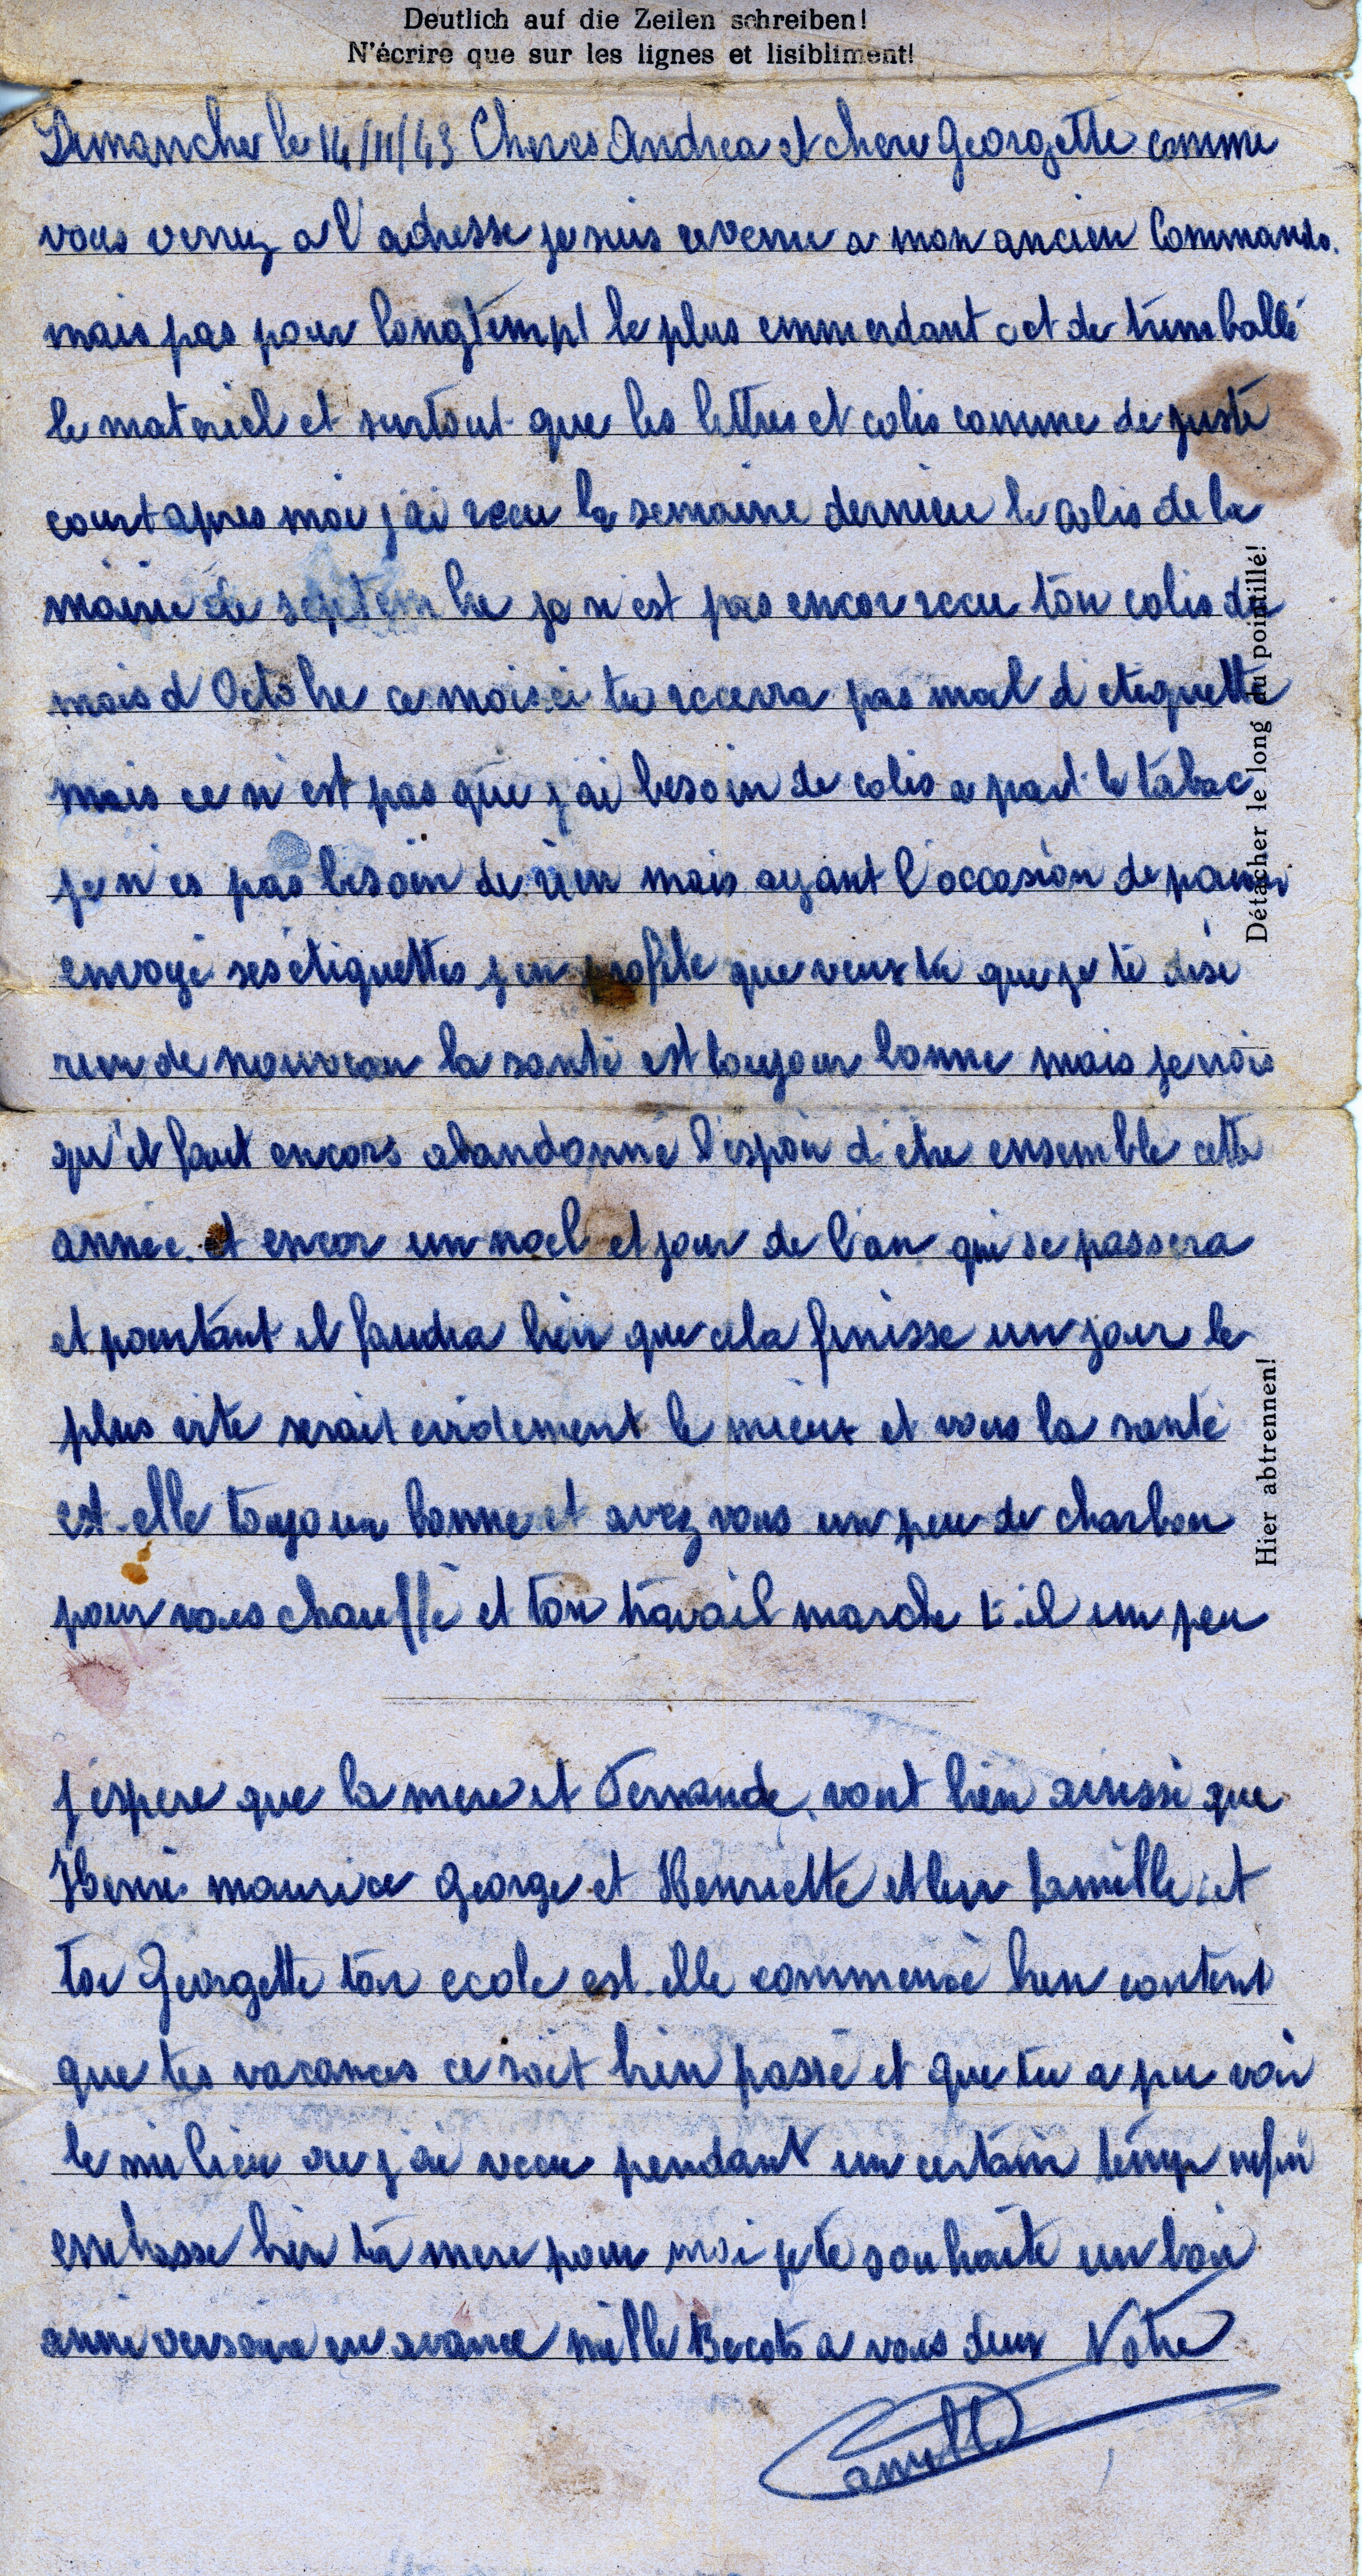 Deutlich auf die Zeilen schreiben!
N'écrire que sur les lignes et lisibliment!
Dimanche le 14/11/43 Cheres Andrea et chere Georgette comme
vous verrez a l'adresse je suis revenu a mon ancien Commando.
mais pas pour longtempt le plus emmerdant cet de trimballé
le materiel et surtout que les lettres et colis comme de juste
court apres moi j'ai recu la semaine derniere le colis de la
mairie de septembre je n'est pas encor recu ton colis du
mois d'Octobre ce mois ci tu recevra pas mal d'etiquette
mais ce n'est pas que j'ai besoin de colis a part le tabac
je n'es pas besoin de rien mais ayant l'occasion de pouvoir
envoyé ses étiquettes j'en profite que veux tu que je te dise
rien de nouveau la santé est toujour bonne mais je vois
qu'il faut encore abandonné l'espoir d'etre ensemble cette
année. et encor un noel et jour de l'an qui se passera
et pourtant il faudra bien que cela finisse un jour le
plus vite serait evidement le mieux et vous la santé
est-elle toujour bonne et avez vous un peu de charbon
pour vous chauffé et ton travail marche t-il un peu
j'espere que la mere et Fernande vont bien ainssi que
Henri maurice George et Henriette et leur famille et
toi Georgette ton ecole est-elle commencé bien content
que tes vacances ce soit bien passé et que tu a pu voir
le milieu ou j'ai vecu pendant un certain temp enfin
embrasse bien ta mere pour moi je te souhaite un bon
anniversaire en avance mille Becots a vous deux Votre
Camille
Détacher le long du pointillé!
Hier abtrennen!